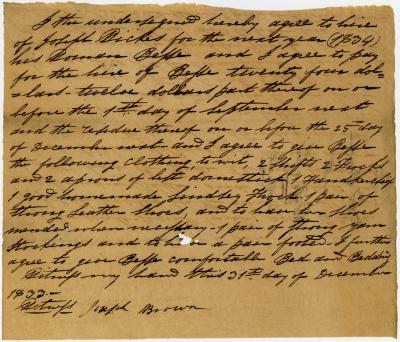 I the undersigned hereby agree to hire
of Joseph Ricks for the next year (1834)
his Woman Besse and I agree to pay
for the hire of Besse twenty four dol=
=lars twelve dollars part thereof on or
before the 1st day of September next
and the residue thereof on or before the 25th day
of December next and I agree to give Besse
the following Clothing to wit, 2 Shifts 2 Frocks
and 2 aprons of domestic 1 Handkerchief
1 good homemade Lindsey Frock 1 pair of
Strong Leather Shoes, and to have her shoes
mended when necessary - 1 pair of Strong yarn
Stockings and to have a pair footed. I further
agree to give Besse comfortable Bed and Bedding
Witness my hand this 31st day of December
1833 -
Witness Joseph Brown